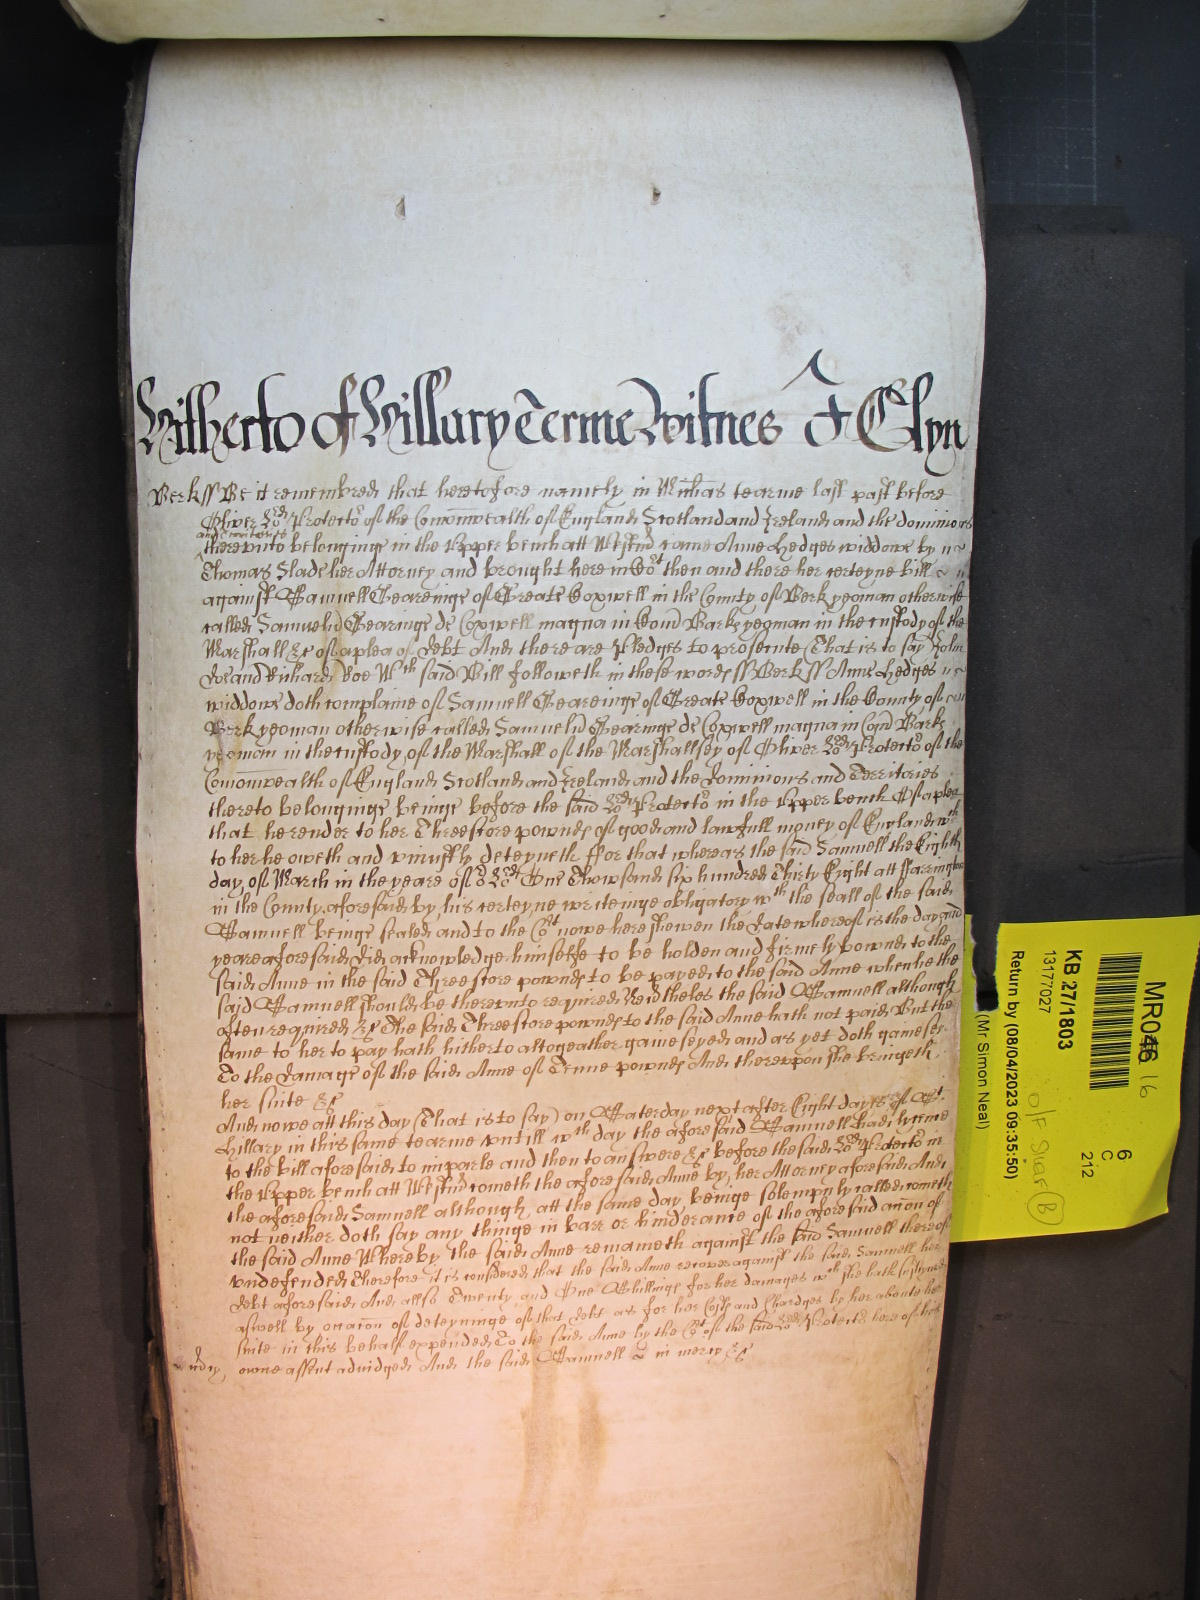 Hitherto of Hillary Terme Witnes J Glyn
Berk ss Be it remembred that heretofore namely in Michas tearme last past before
Oliver Lord Protector of the Comonwealth of England Scotland and Ireland and the dominions
and territories
thereunto belonginge in the Upper bench att Westmr came Anne Hedges widdowe by
Thomas Slade her Attorney and brought here into Cot then and there her certeyne bill
against Samuell Gearinge of Greate Coxwell in the County of Berk yeoman otherwise
called Samuell Gearinge de Coxwell magna in Com Barks yeoman in the custody of the
Marshall &c of a plea of debt And there are Pledges to prosecute (That is to say) John
Doe and Richard Roe Wch said Bill followeth in these words ss Berk ss Anne Hedges
widdowe doth complaine of Samuell Gearinge of Greate Coxwell in the County of
Berk yeoman otherwise called Samuell Gearinge de Coxwell magna in Com Barks
yeoman in the custody of the Marshall of the Marshallsey of Oliver Lord Protector of the
Comonwealth of England Scotland and Ireland and the dominions and Territories
thereto belonginge beinge before the said Lord Protector in the Upper bench Of a plea
that he render to her Threescore pownds of good and lawfull money of England wch
to her he oweth and uniustly deteyneth ffor that whereas the said Samuell the Eighth
day of March in the yeare of or Lord One Thowsand six hundred Thirty Eight att ffarringdon
in the County aforesaid by his certeyne writeinge obligatory wth the seall of the said
Samuell beinge sealed and to the Cot nowe here shewen the date whereof is the day and
yeare aforesaid did acknowledge himselfe to be holden and firmely bownd to the
said Anne in the said Threescore pownds to be payed to the said Anne when he the
said Samuell should be thereunto required Neidtheles the said Samuell although
often required &c The said Threescore pownds to the said Anne hath not paid But the
same to her to pay hath hitherto altogeather gaineseyed and as yet doth gainesey
To the damage of the said Anne of Tenne pownds And thereupon she bringeth
her suite &c
And nowe att this day (That is to say) on Saterday next after Eight dayes of St
Hillary in this same tearme untill wch day the aforesaid Samuell had lycence
to the bill aforesaid to imparle and then to answere &c before the said Lord Protector in
the Upper bench att Westmr cometh the aforesaid Anne by her Attorney aforesaid And
the aforesaid Samuell although att the same day beinge solempnly called cometh
not neither doth say any thinge in barr or hinderance of the aforesaid accon of
the said Anne Whereby the said Anne remaineth against the said Samuell thereof
undefended Therefore it is considered that the said Anne recover against the said Samuell her
debt aforesaid And allso Twenty and One Shillings for her damages wch she hath susteyned
aswell by occacon of deteyninge of that debt as for her Costs and Chardges by her aboute her
suite in this behalf expended To the said Anne by the Cot of the said Lord Protector here of her
owne assent adiudged And the said Samuell in mercy &c
MR046 16
6
C
212
KB 27/1803
13177027
Return by (08/04/2023 09:35:50)
(Mr Simon Neal)
B